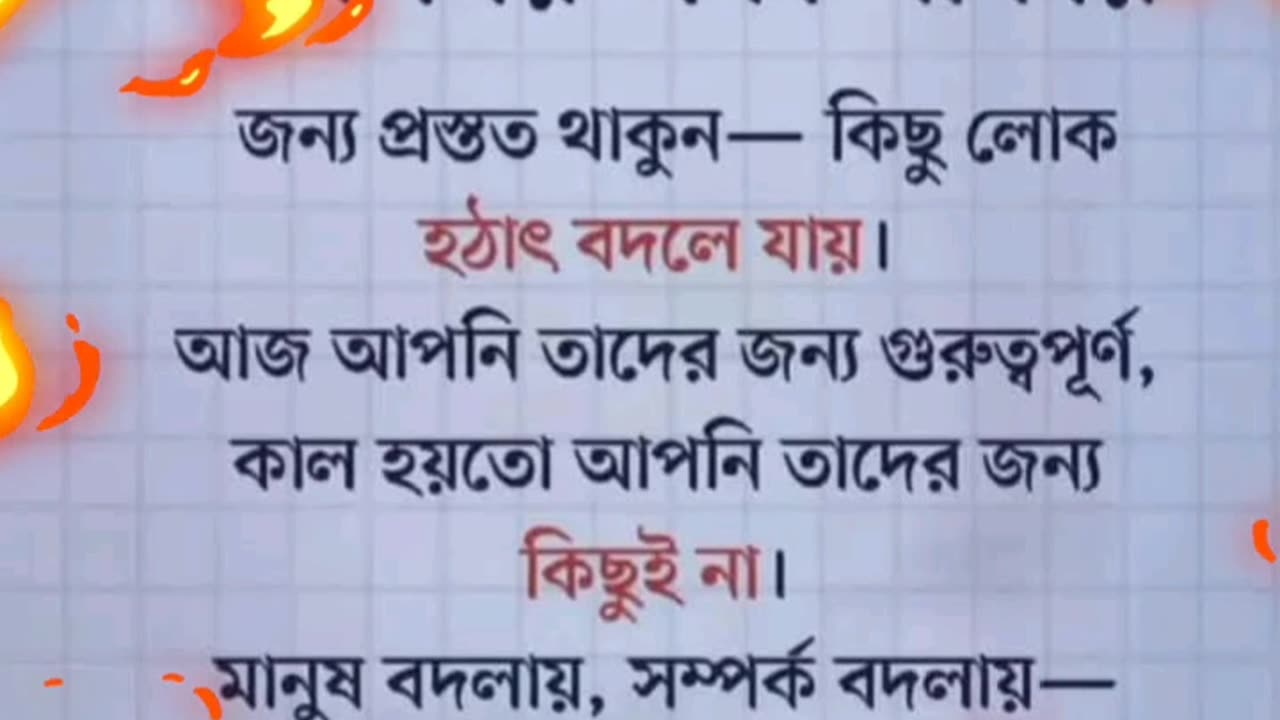 জন্য প্রস্তুত থাকুন— কিছু লোক
হঠাৎ বদলে যায়।
আজ আপনি তাদের জন্য গুরুত্বপূর্ণ,
কাল হয়তো আপনি তাদের জন্য
কিছুই না।
মানুষ বদলায়, সম্পর্ক বদলায়—